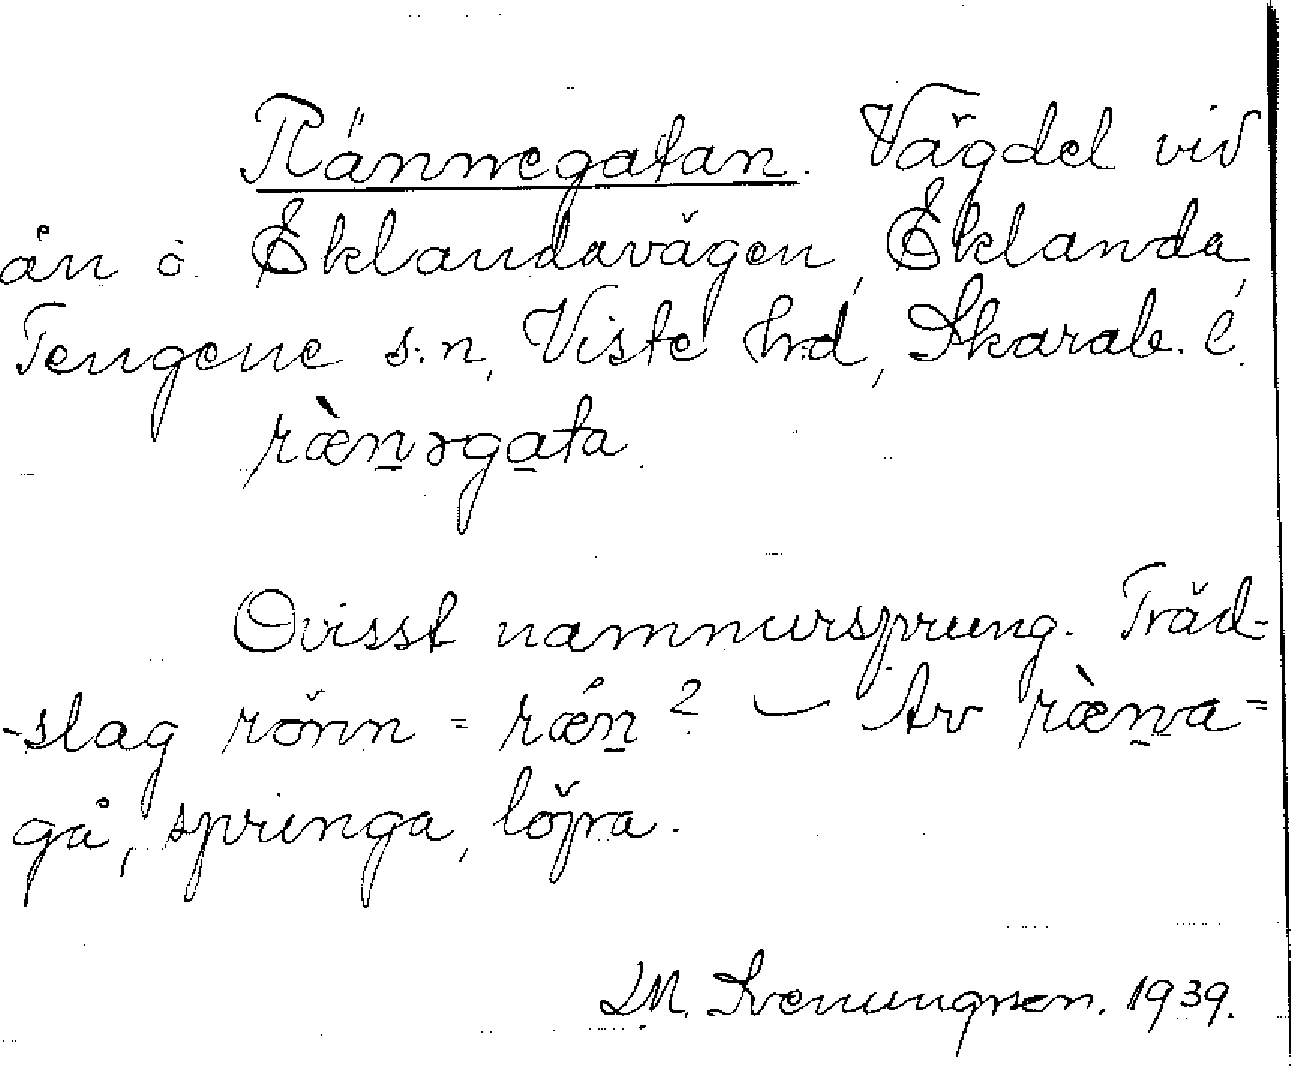 Rännegatan. Vägdel vid
ån o. Eklandavägen, Eklanda,
Tengene s:n, Viste hrd, Skarab. l.
ræ̀n̲əga̲ta.
Ovisst namnursprung. Träd-
-slag rönn = rǽn̲ ? – Av ræ̀n̲a =
gå, springa, löpa.
LM. Svenungsson. 1939.